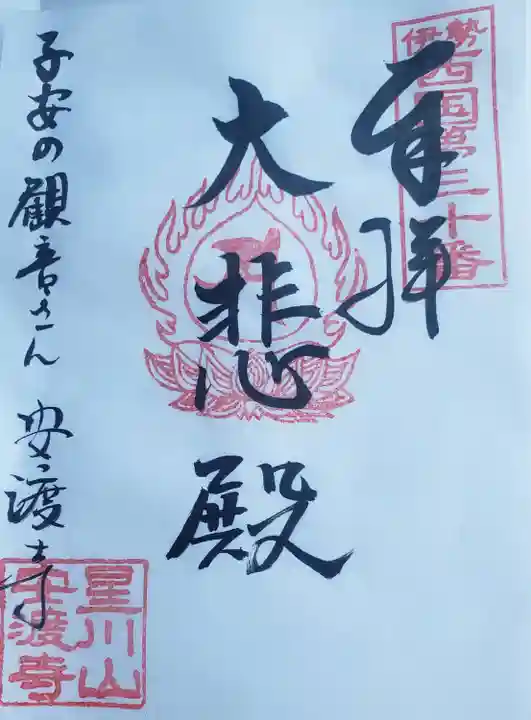 伊勢
西国第三十番
奉拝
大悲殿
子安の観音さん 安渡寺
星川山
安渡寺